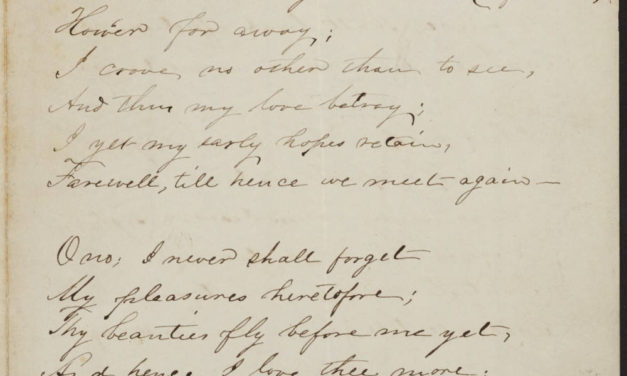 However far away;
I crave no other than to see,
And thus my love betray;
I yet my early hopes retain,
Farewell, till hence we meet again—
O no; I never shall forget
My pleasures heretofore;
Thy beauties fly before me yet,
And hence I love thee more;